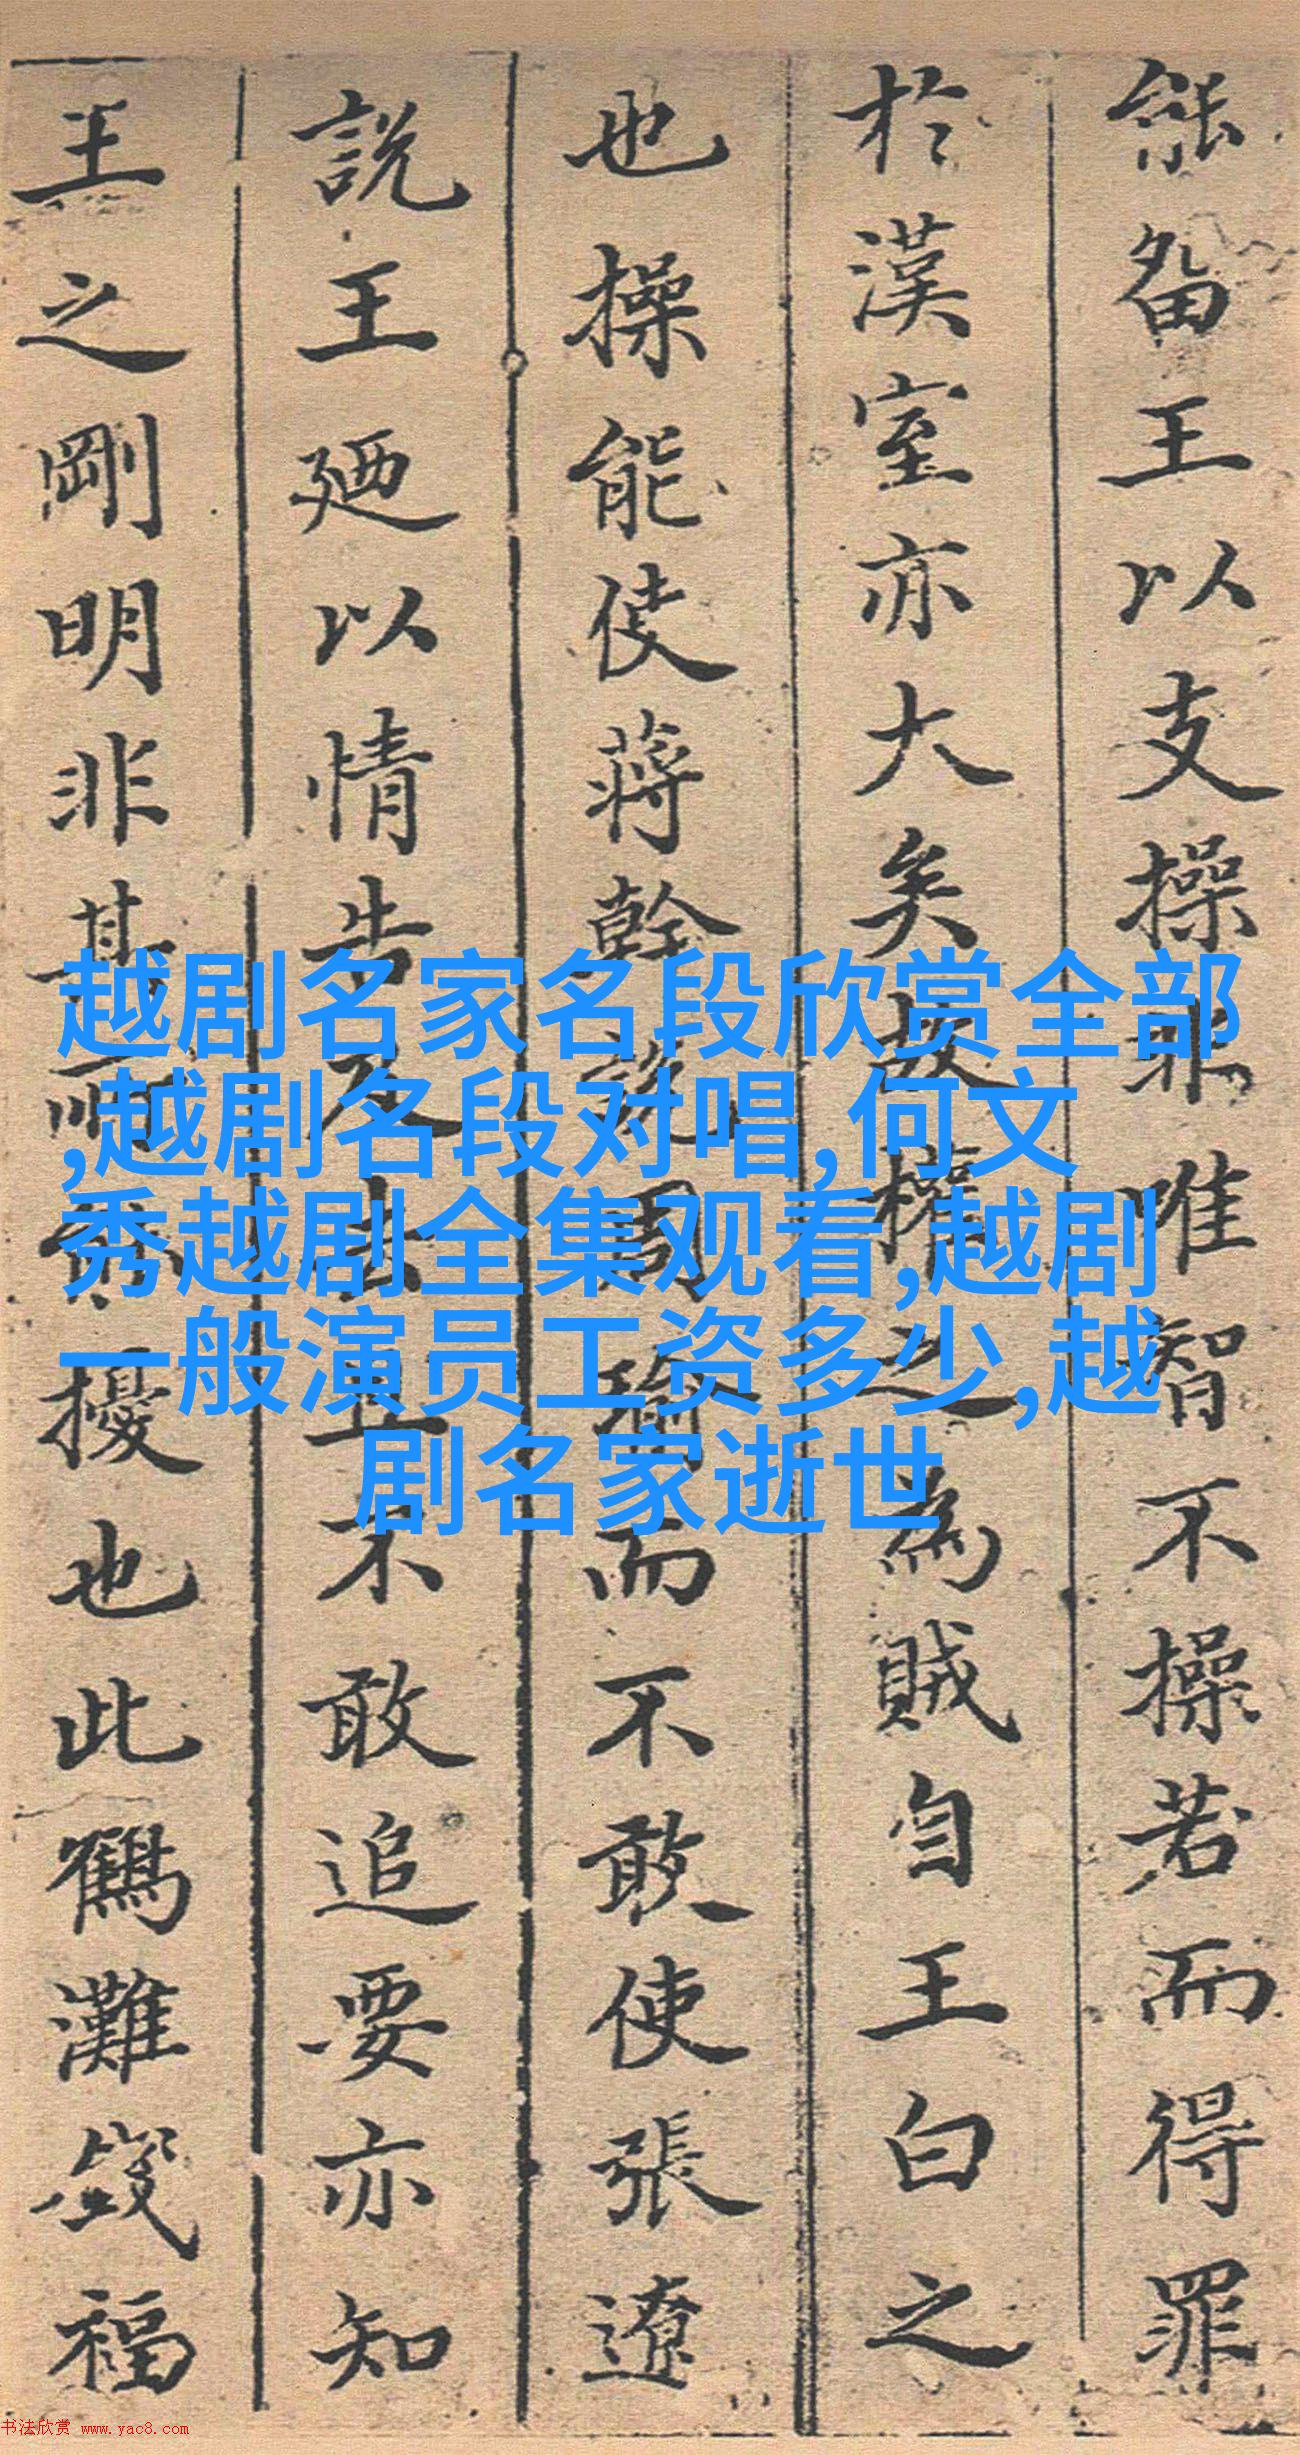 能留王以支操非唯智不操若而得罪
於漢室亦大矣故權之為賊自王白之
也操能使蔣幹說周瑜而不敢使張遼
說王廼以情告及去且不敢追要亦知
王之剛明非其所擾也此鶴灘福
越剧名家名段欣赏全部
,越剧名段对唱,何文
秀越剧全集观看,越剧
一般演员工资多少,越
剧名家逝世
书法欣赏 www.yac8.com